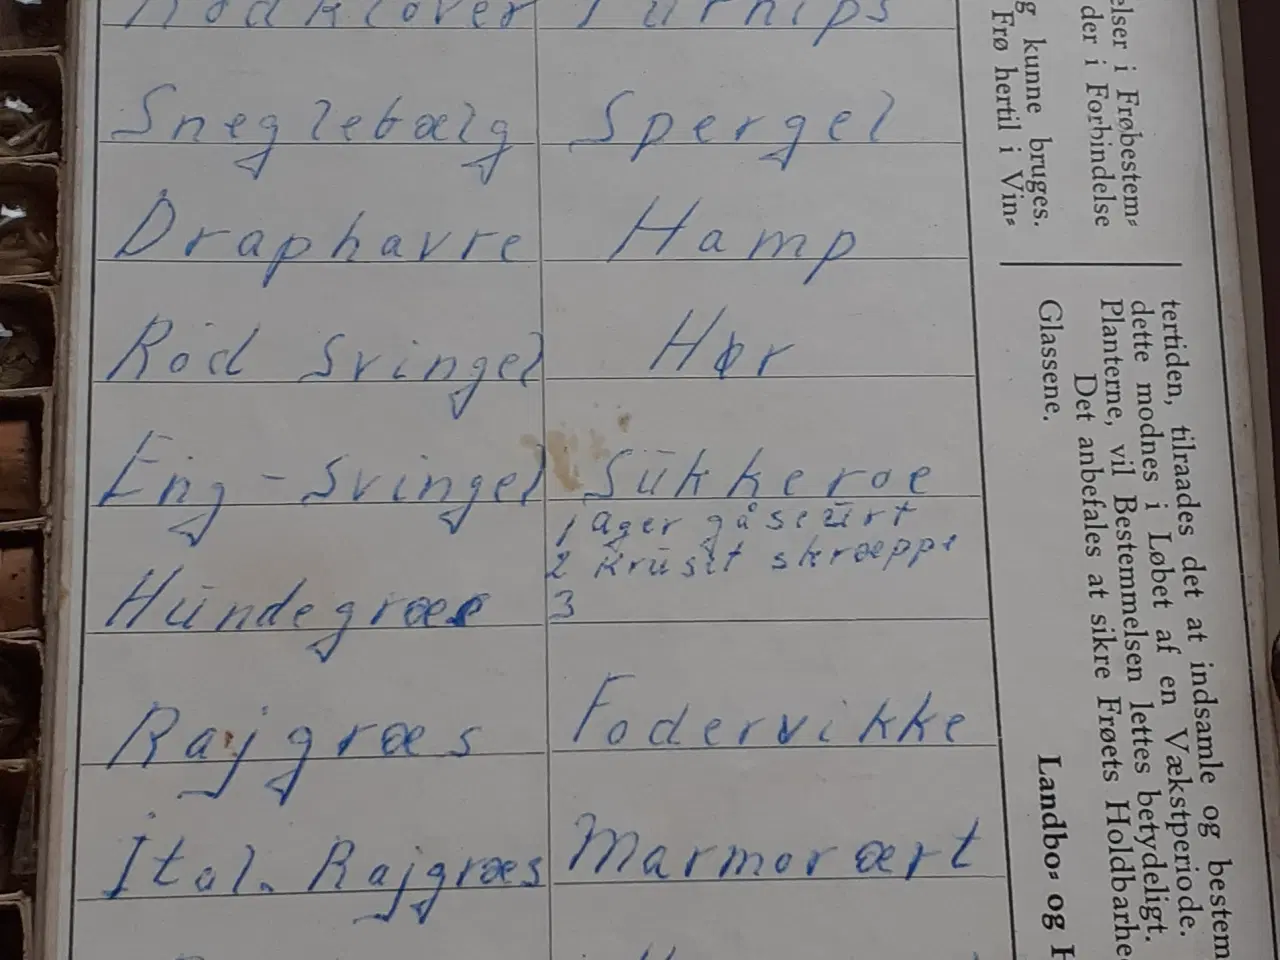 Rödkløver Turnips
Sneglebælg Spergel
Draphavre Hamp
Röd Svingel Hør
Eng-Svingel Sükkeroe
1 ager gåseürt
2 krüset skræppe
Hündegræs 3
Rajgræs Fodervikke
Ital. Rajgræs Marmorært
elser i Frøbestem=
der i Forbindelse
g kunne bruges.
Frø hertil i Vin=
tertiden, tilraades det at indsamle og bestem
dette modnes i Løbet af en Vækstperiode.
Planterne, vil Bestemmelsen lettes betydeligt.
Det anbefales at sikre Frøets Holdbarhe
Glassene.
Landbo= og H